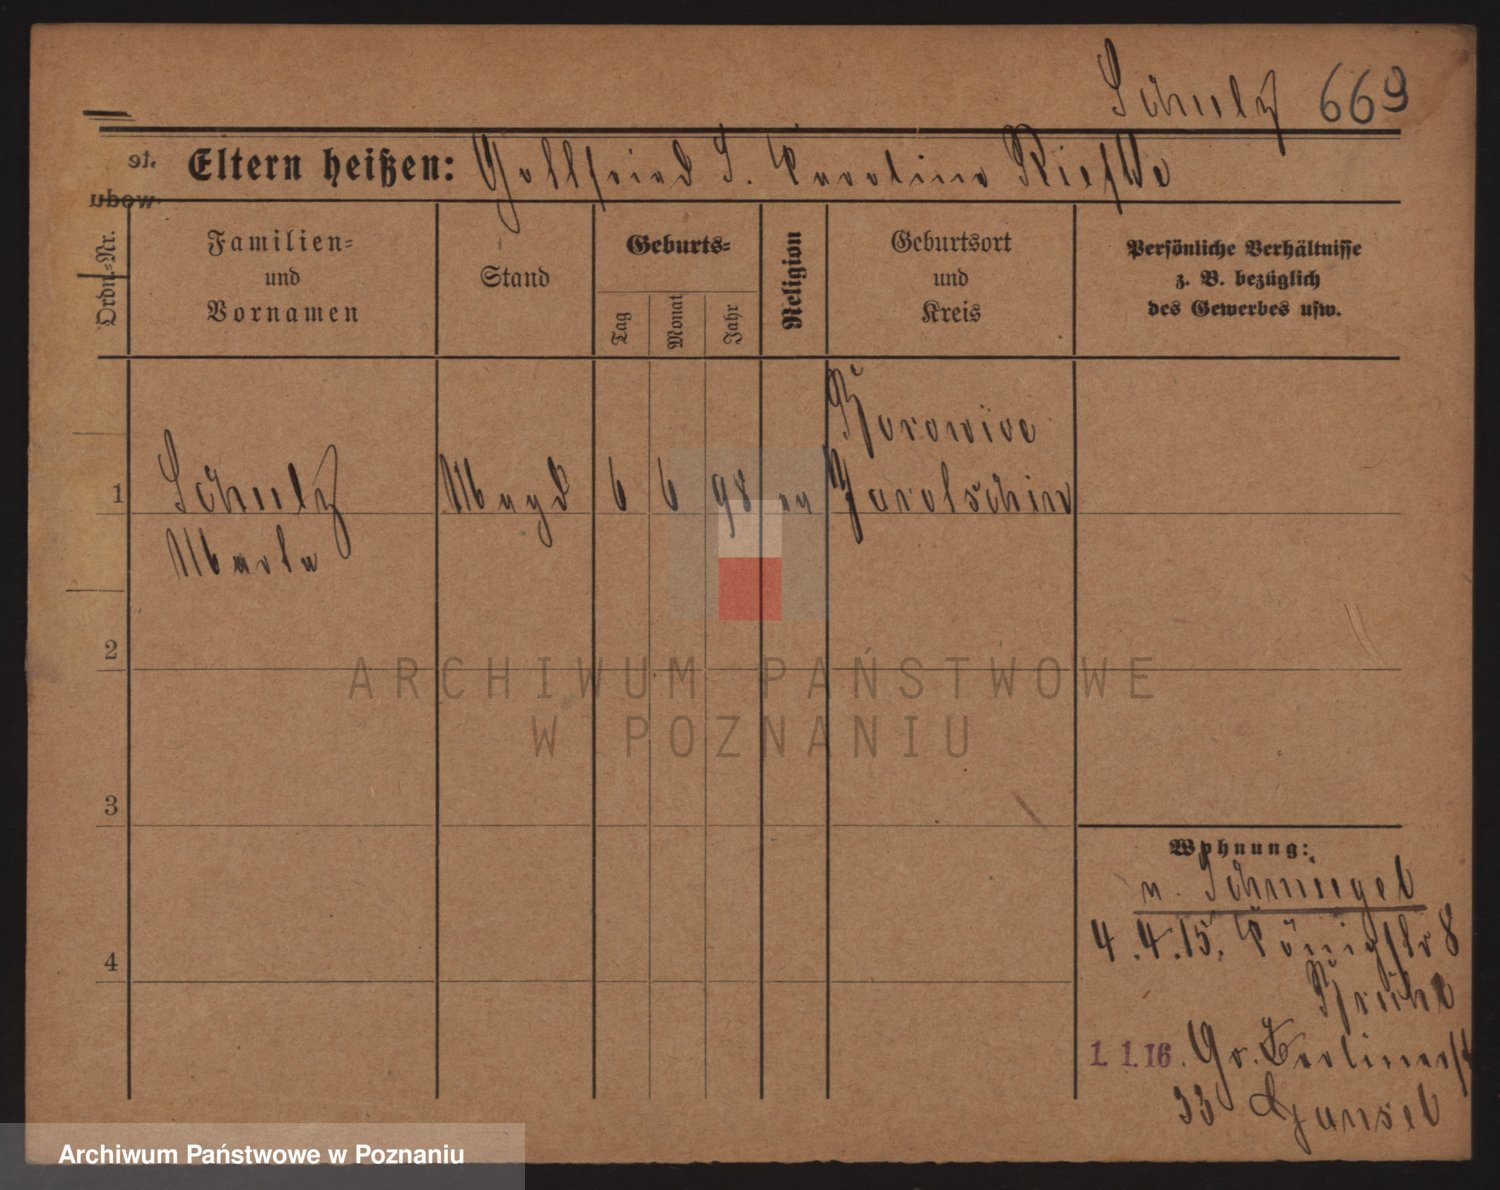 Schulz 669
Eltern heißen: Gottfried S. Karoline
Ordn.-Nr.
Familien-
und
Vornamen
Stand
Geburts-
Tag
Monat
Jahr
Religion
Geburtsort
und
Kreis
Persönliche Verhältnisse
z. B. bezüglich
des Gewerbes usw.
1
Schulz
Marta
Magd
6
6
98
ev
Jarotschin
2
3
4
Wohnung:
v. Schmiegel
4.4.15. Königstr 8
1.1.16. Gr. Berlinerst
33
ARCHIWUM PAŃSTWOWE
W POZNANIU
Archiwum Państwowe w Poznaniu